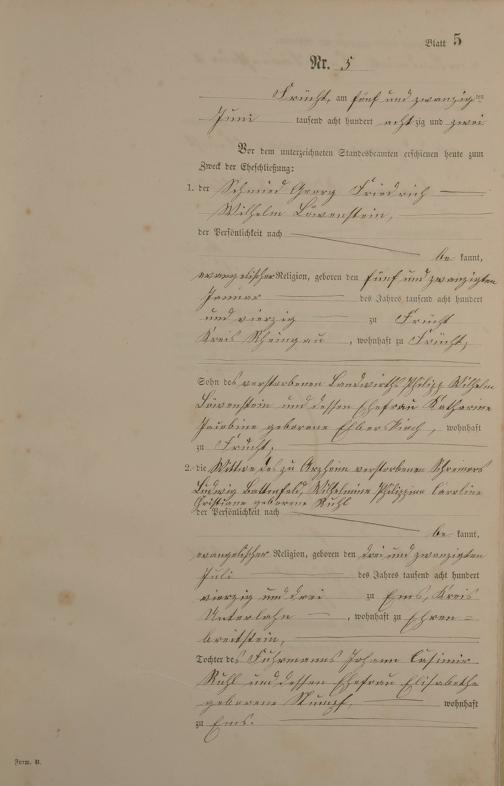 Blatt 5
Nr. 5
Frücht, am fünf und zwanzigten
Juni tausend acht hundert achtzig und zwei
Vor dem unterzeichneten Standesbeamten erschienen heute zum
Zweck der Eheschließung:
1. der Schmied Georg Friedrich
Wilhelm Löwenstein,
der Persönlichkeit nach
be kannt,
evangelischer Religion, geboren den fünf und zwanzigten
Januar des Jahres tausend acht hundert
und vierzig zu Frücht
Kreis Rheingau, wohnhaft zu Frücht,
Sohn des verstorbenen Landwirths Philipp Wilhelm
Löwenstein und dessen Ehefrau Katharine
Jacobine geborene, wohnhaft
zu Frücht,
2. die Wittwe des zu Arzheim verstorbenen Schreiners
Ludwig Battenfeld, Wilhelmine Philippine Caroline
Christiane geborene Ruhl
der Persönlichkeit nach
be kannt,
evangelischer Religion, geboren den drei und zwanzigten
Juli des Jahres tausend acht hundert
vierzig und drei zu Ems, Kreis
Unterlahn, wohnhaft zu Ehren=
breitstein,
Tochter des Fuhrmanns Johann Casimir
Ruhl und dessen Ehefrau Elisabetha
geborene Stumpf, wohnhaft
zu Ems.
Form. B.